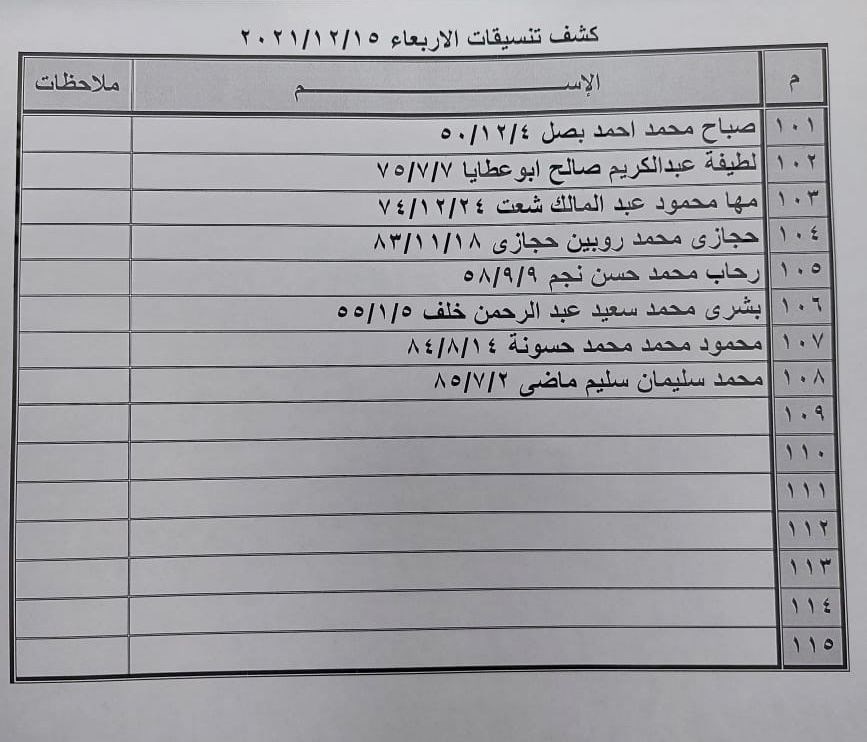 كشف تنسيقات الاربعاء ٢٠٢١/١٢/١٥
م الإســـــــــــــــــــــــم ملاحظات
١٠١ صباح محمد احمد بصل ٥٠/١٢/٤
١٠٢ لطيفة عبدالكريم صالح ابوعطايا ٧٥/٧/٧
١٠٣ مها محمود عبد المالك شعت ٧٤/١٢/٢٤
١٠٤ حجازى محمد روبين حجازى ٨٣/١١/١٨
١٠٥ رحاب محمد حسن نجم ٥٨/٩/٩
١٠٦ بشرى محمد سعيد عبد الرحمن خلف ٥٥/١/٥
١٠٧ محمود محمد محمد حسونة ٨٤/٨/١٤
١٠٨ محمد سليمان سليم ماضى ٨٥/٧/٢
١٠٩
١١٠
١١١
١١٢
١١٣
١١٤
١١٥